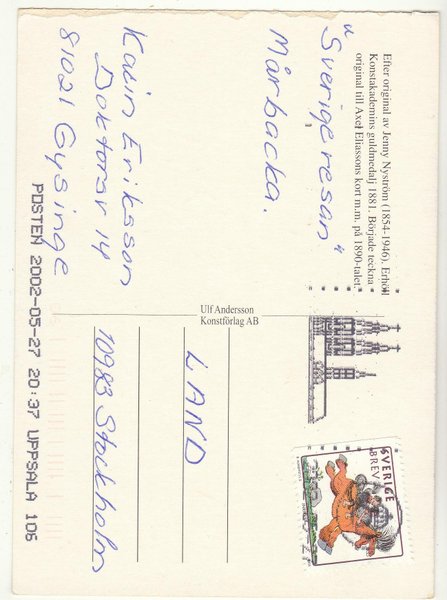 Efter original av Jenny Nyström (1854-1946). Erhöll
Konstakademins guldmedalj 1881. Började teckna
original till Axel Eliassons kort m.m. på 1890-talet.
"Sverigeresan"
Mårbacka.
Karin Eriksson
Doktorsv 14
81021 Gysinge
Ulf Andersson
Konstförlag AB
SVERIGE
BREV
LAND
10983 Stockholm
POSTEN 2002-05-27 20:37 UPPSALA 106